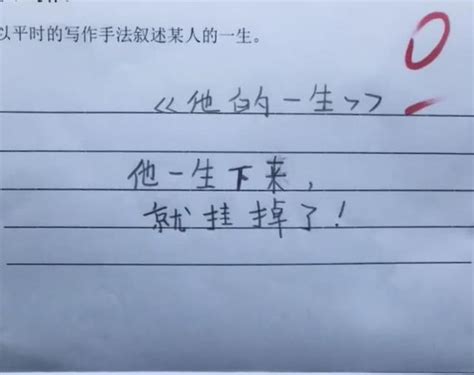 以平时的写作手法叙述某人的一生。
0
<<他的一生>>
他一生下来，
就挂掉了！